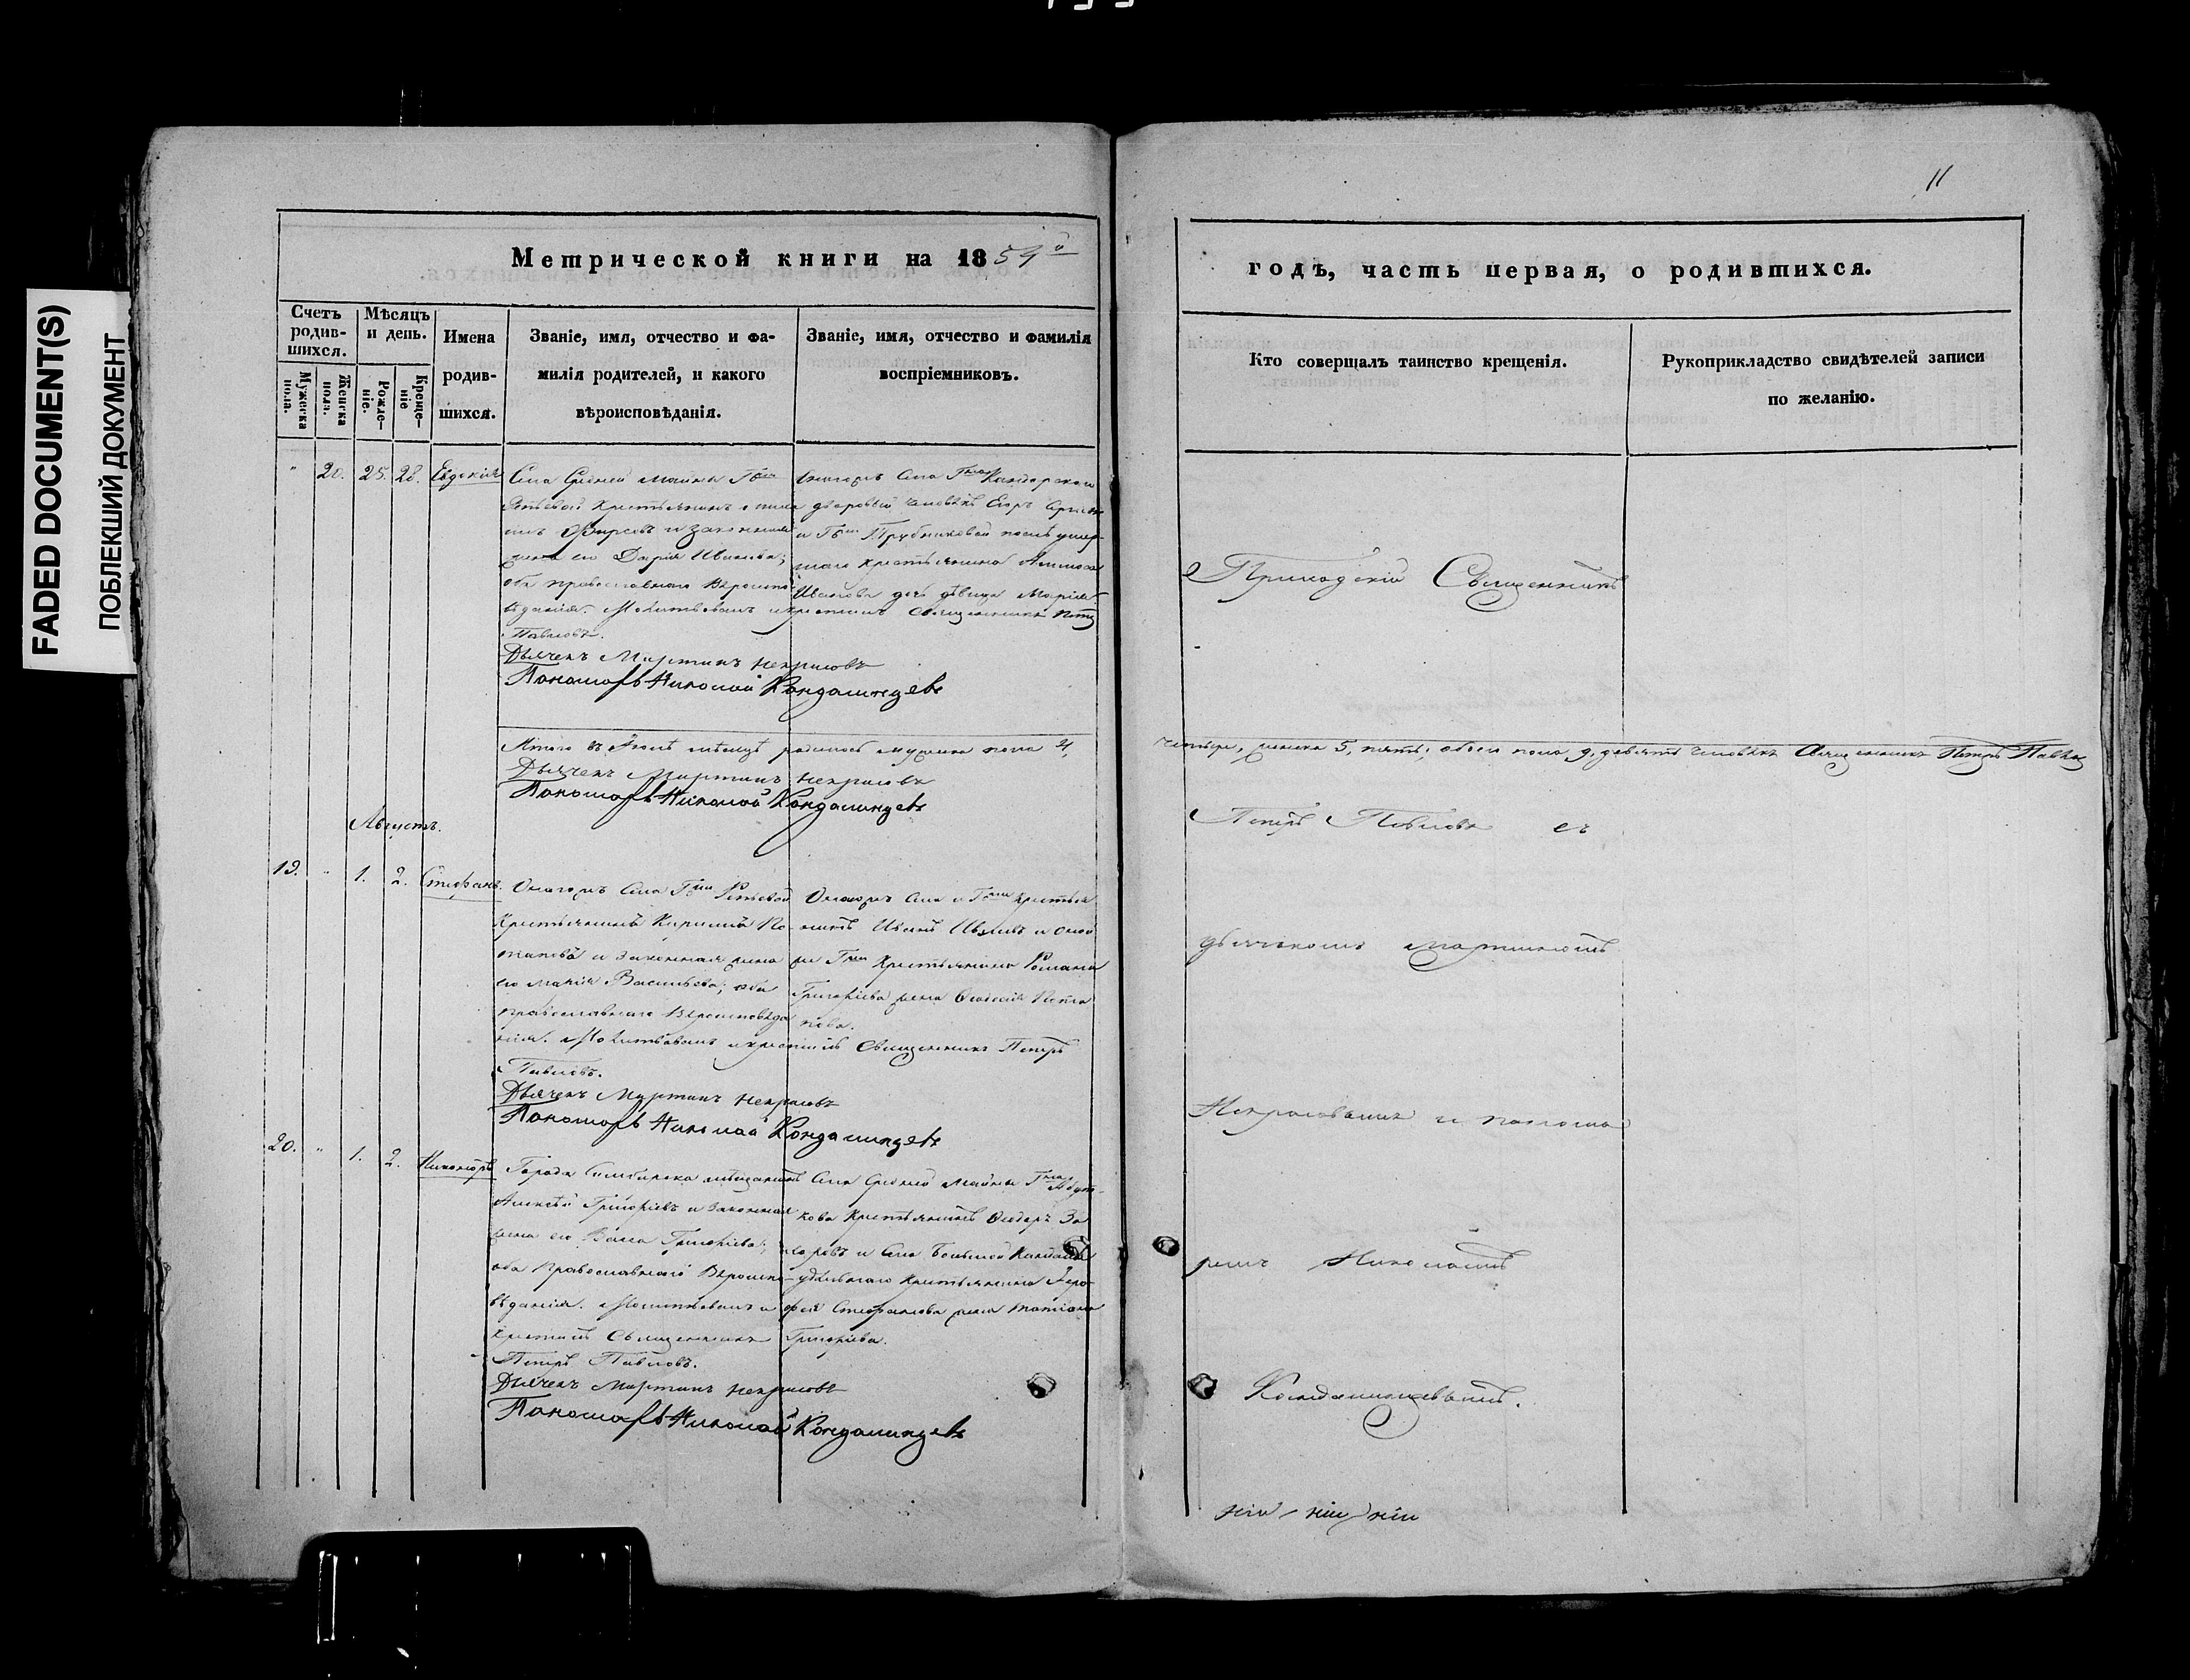 FADED DOCUMENT(S)
ПОБЛЕКШИЙ ДОКУМЕНТ
11
Метрической книги на 1854й
годъ, часть первая, о родившихся.
Счетъ родив-шихся.
Мужеска пола.
Женска пола.
Мѣсяцъ и день.
Рожде-ніе.
Креще-ніе
Имена
родив-
шихся.
Званіе, имя, отчество и фа-
милія родителей, и какого
вѣроисповѣданія.
Званіе, имя, отчество и фамилія
воспріемниковъ.
Кто совершалъ таинство крещенія.
Рукоприкладство свидѣтелей записи
по желанію.
" 20. 25. 28. Евдокія
Села Средней Майны Гжи
крестьянинъ
Фирсовъ и законная
жена его Дарія Иванова;
оба православнаго вѣроиспо-
вѣданія. Молитвовалъ и крестилъ Священникъ Петръ
Павловъ.
Дьячекъ Мартинъ Некрасовъ
Пономарь Николай Кондалинцевъ
Оногожъ Села
дворовый человѣкъ Егоръ
и Гжи Трубниковой послѣ умер-
шаго крестьянина
Иванова дочь дѣвица Марія
Приходскій Священникъ
Итого въ Іюлѣ мѣсяцѣ родилось мужеска пола 4,
четыре, женска 5, пять; обоего пола 9, девять человѣкъ Священникъ Петръ Павловъ
Дьячекъ Мартинъ Некрасовъ
Пономарь Николай Кондалинцевъ
Петръ Павловъ съ
Августъ.
19. " 1. 2. Стефанъ.
Оногожъ Села Гжи
Крестьянинъ Кирилла По-
таповъ и законная жена
его Марія Васильева; оба
православнаго вѣроисповѣда
нія. Молитвовалъ и крестилъ Священникъ Петръ
Павловъ.
Дьячекъ Мартинъ Некрасовъ
Пономарь Николай Кондалинцевъ
Оногожъ Села и Гжи крестья
нинъ Иванъ и оной
же Гжи Крестьянина Романа
Григорьева жена Ѳеодосія Пота
пова.
дьячкомъ Мартиномъ
Некрасовымъ и понома
20. " 1. 2. Никаноръ
Города Симбирска мѣщанинъ
Алексѣй Григорьевъ и законная
жена его Васса Григорьева;
оба Православнаго Вѣроиспо-
вѣданія. Молитвовалъ и
крестилъ Священникъ
Петръ Павловъ.
Дьячекъ Мартинъ Некрасовъ
Пономарь Николай Кондалинцевъ
Села Средней Майны
кова Крестьянинъ Ѳедоръ За
харовъ и Села Большой Кандалы
удѣльнаго крестьянина Іеро-
фея Стефанова жена Татіана
Григорьева.
ремъ Николаемъ
Кондалинцевымъ.